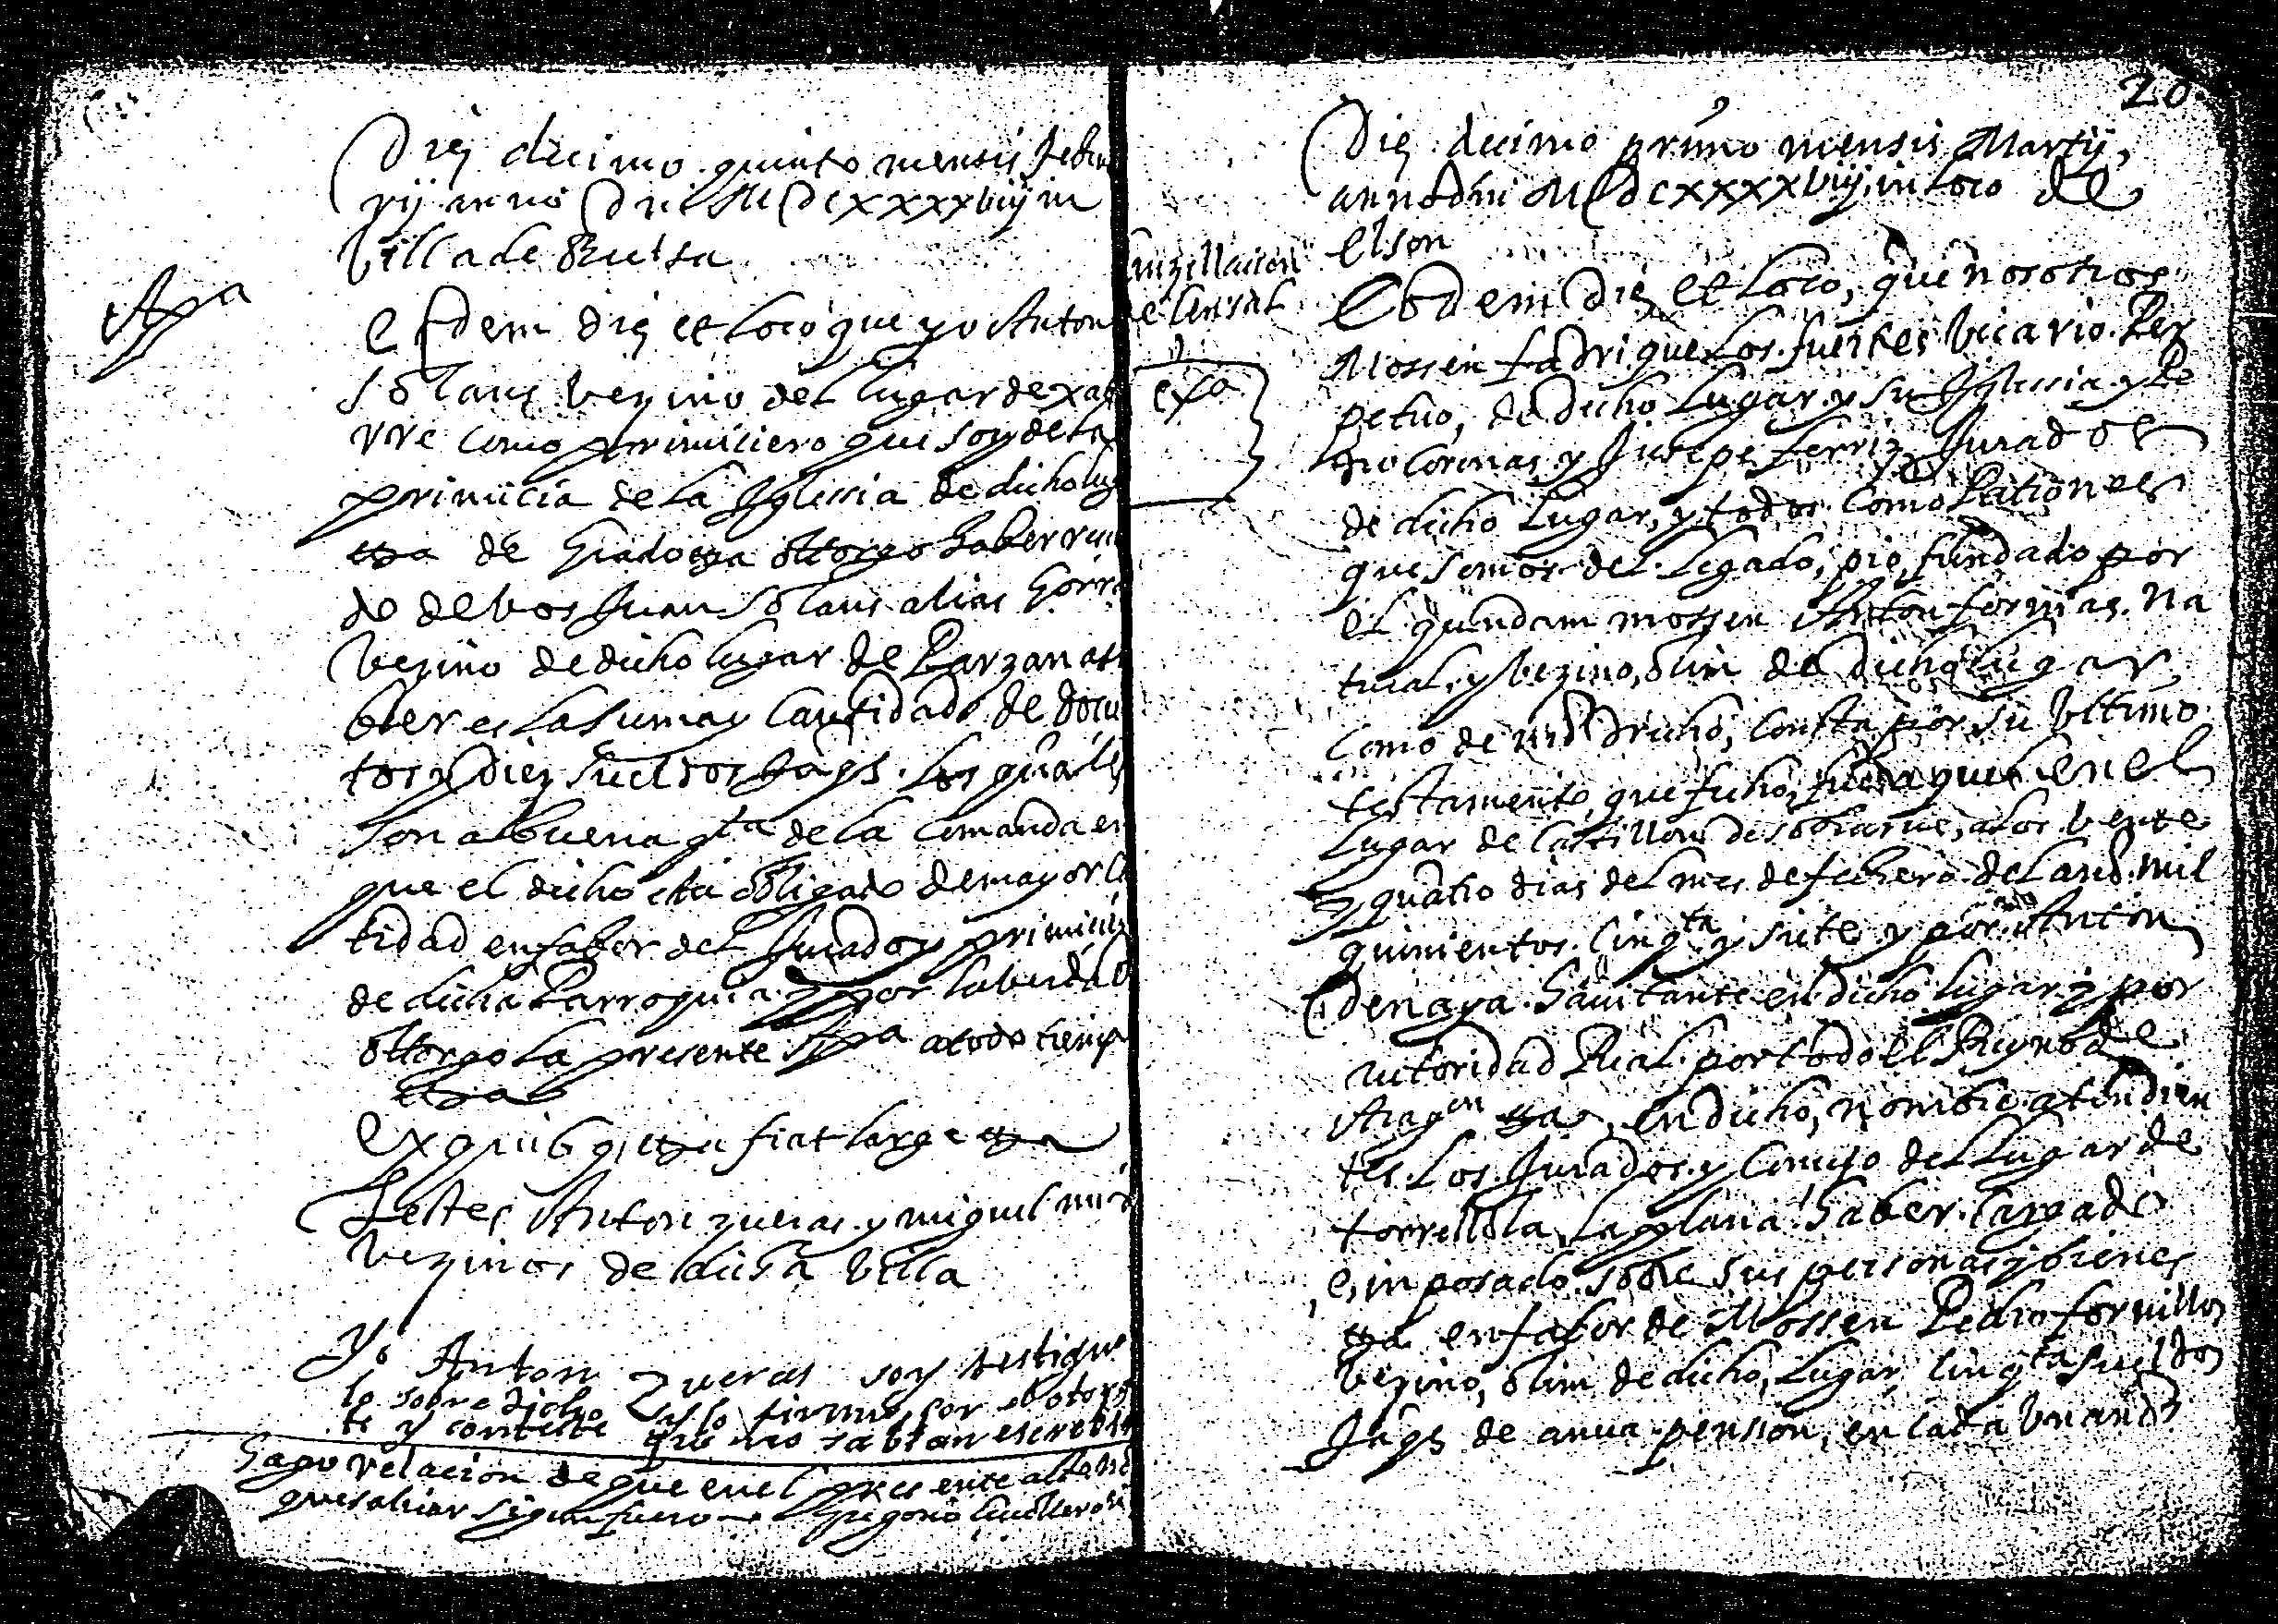 Die decimo quinto mensis febru
rij anno Dni MDCxxxxviij in
Villa de Buesa
Apa
Eisdem die et loco que yo Anton
Solans vezino del lugar de xat
rre como primiciero que soy de la
primicia de la Iglessia de dicho lug
etza de Grado etza ottorgo haber reui
do de bos Juan Solans alias Gorr
Vezino de dicho lugar de Parzan ass
ber es la suma y cantidad de docu
tos y diez sueldos Jaqs. los quales
son a buena qta de la comanda en
que el dicho esta obligado de mayor ca
tidad en fabor del Jurado y primici
de dicha Parroquia y por la berdad
ottorgo la presente Apa a todo tiemp
etza
Ex quibq etza fiat large etza
Testes Anton zueras y miguel mi
Vezinos de dicha Villa
Yo Anton Zueras soy testigo
lo sobredicho y lo firmo por el otorg
te y conteste que no sabian escrebir
Hago relacion de que en el presente acto no
que salbar segun fuero Gregorio
20
Die decimo primo mensis Martij,
anno dni MDCxxxxviij, in loco de
elson
Cancillacion
de Censal
Eodem die et loco, que nosotros
Mossen fadrique los fuertes Vicario Per
petuo, de dicho Lugar y su Iglessia y
Corinas y Jusepe ferriz Jurados
exa
de dicho Lugar, y todos como Patrones
que semos del Legado, pio, fundado por
el quondam mossen Anton formas Na
tural, y bezino, olim de dicho lugar
como de dicho, consta por su Ultimo
testamento, que fecho, fue aquel en el
Lugar de Castillon de sobrarue, a los bente
y quatro dias del mes de febrero del año mil
quinientos. Cinqta y siete y por Anton
Denaya. hauitante en dicho lugar y por
autoridad Real por todo el Reyno de
Aragon etza, en dicho, nombre, atendien
tes. Los Jurados, y Concejo del Lugar de
torrellola, la plana. haber. cargado
e, imposado sobre sus personas y bienes
etza en fabor de Mossen Pedro fornillos
bezino, olim de dicho, Lugar, cinqta sueldos
Jaqs de anua pension, en cada un año